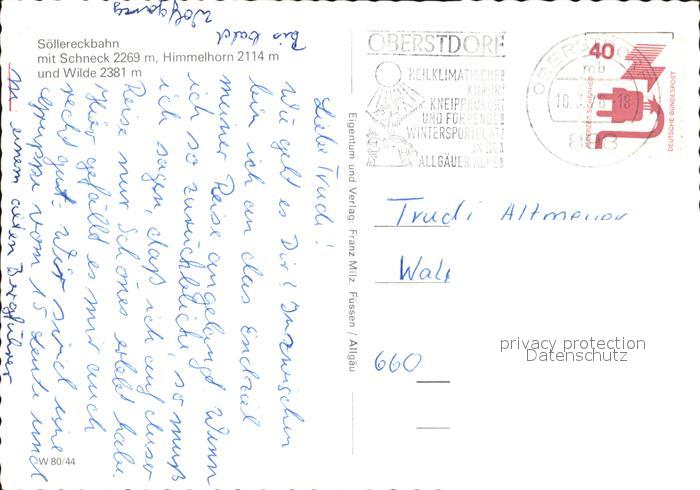 Söllereckbahn
mit Schneck 2269 m, Himmelhorn 2114 m
und Wilde 2381 m
Liebe Trudi!
Wie geht es Dir? Inzwischen
bin ich an das Endziel
meiner Reise angelangt. Wenn
ich so zurückblicke, so muß
ich sagen, daß ich auf dieser
Reise nur Schönes erlebt habe.
Hier gefällt es mir auch
recht gut. Wir sind eine
Gruppe vom 15 Leute und
einem alten Bergführer
Bis bald
Wolfgang
W 80/44
Eigentum und Verlag: Franz Milz, Füssen / Allgäu
OBERSTDORF
HEILKLIMATISCHER
KURORT
KNEIPPKURORT
UND FÜHRENDER
WINTERSPORTPLATZ
IN DEN
ALLGÄUER ALPEN
OBERSTDORF
mb
18
40
DEUTSCHE BUNDESPOST
Trudi
660
privacy protection
Datenschutz